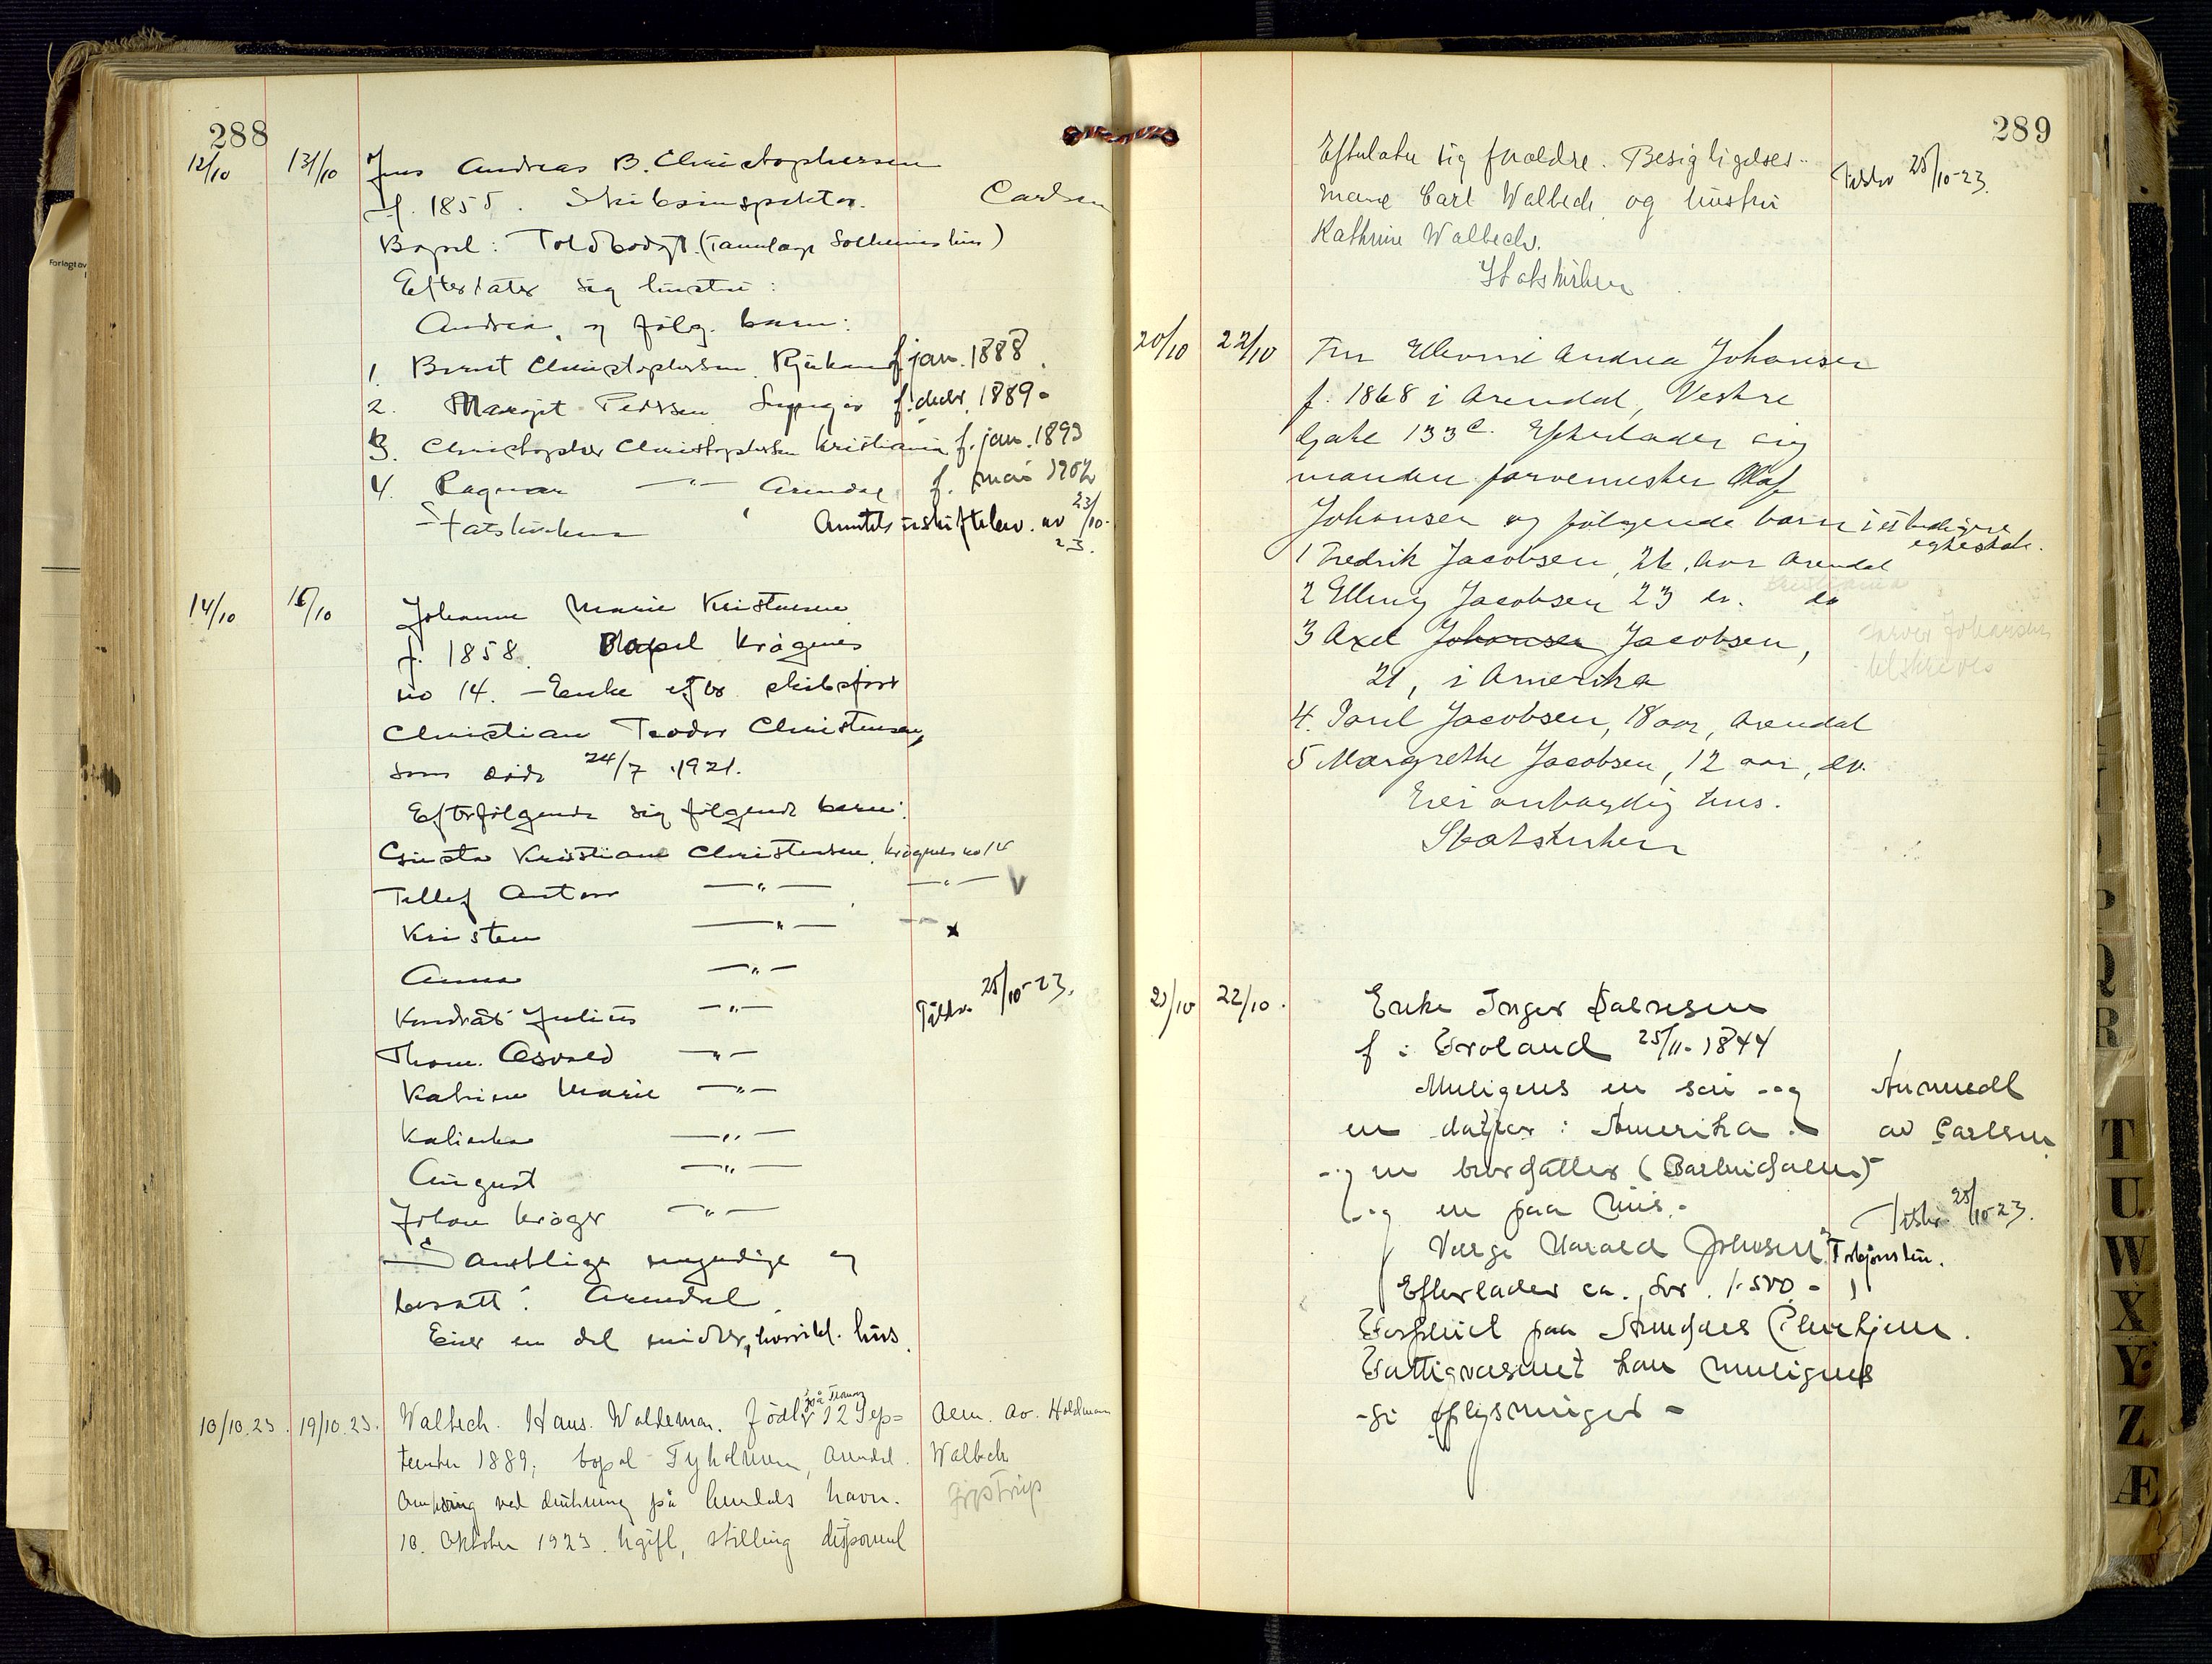 288
12/10 13/10 Jens Andreas B. Christophersen
f. 1855. Skibsinspektør. Carlsen
Bopel: Toldbodgt. (Tannlæge Solheims hus)
Efterlater sig hustru:
Andrea, og følg. barn:
1. Bernt Christophersen, Rjukan f. jan. 1888
2. Margit Pedersen f. decbr. 1889.
3. Christopher Christophersen Kristiania f. jan. 1893
4. Ragnar —"— Arendal f. mai 1902
Statskirken Anmeldt av 23/10-23.
14/10 15/10 Johanne Marie Kristensen
f. 1858. Bopel Krøgenes
no 14. – Enke efter skibsfører
Christian Teodor Christensen,
som døde 24/7 1921.
Efterfølgende sig følgende barn:
Gusta Kristiane Christensen, Krøgenes no 14
Tellef Anton —"— —"— V
Kristen —"— — x
Anna —"—
Kondrat Julius —"— Tilskr. 25/10-23.
Thom. Osvald —"—
Katrine Marie —"—
Kalinka —"—
August —"—
Johan Krøger —"—
Samtlige myndige og
bosatt i Arendal.
Eier en del midler, hus.
18/10.23. 19/10.23. Walbech. Hans. Woldemar. Født på Tromø 12 Sep-
tember 1889; bopæl Tyholmen, Arendal.
Omkom ved drukning på Arendals havn.
18. Oktober 1923. Ugift, stilling disponent
Anm. av. Holdman
Walbech
289
Efterlater sig foreldre. Besigtigelses-
mand Carl Walbech og hustru
Kathrine Walbech.
Statskirken
Tilskr 25/10-23.
20/10 22/10 Fru Andrea Johansen
f. 1868 i Arendal, Vestre
Gate 133c. Efterlader sig
manden farvemester Olaf
Johansen og følgende barn i tidligere
egteskab.
1 Fredrik Jacobsen, 26 aar Arendal
2 Elling Jacobsen 23 do. do
3 Axel Johansen Jacobsen,
21, i Amerika
4. Paul Jacobsen, 18 aar, Arendal
5 Margrethe Jacobsen, 12 aar, do.
Eier hus.
Statskirken
21/10 22/10. Enke Inger
f. i Froland 25/11-1844
Muligens en søn og
en datter i Amerika.
og en brordatter
og en paa Hiis.
Verge Harald Johnsen, Torbjørnsbu.
Efterlader ca. kr. 1.500.-
paa Arendals Pleiehjem.
Fattigvæsenet kan muligens
gi oplysninger -
Anmeldt
av Carlsen
Tilskr. 25/10-23.
T
U
W
X
Y
Z
Æ